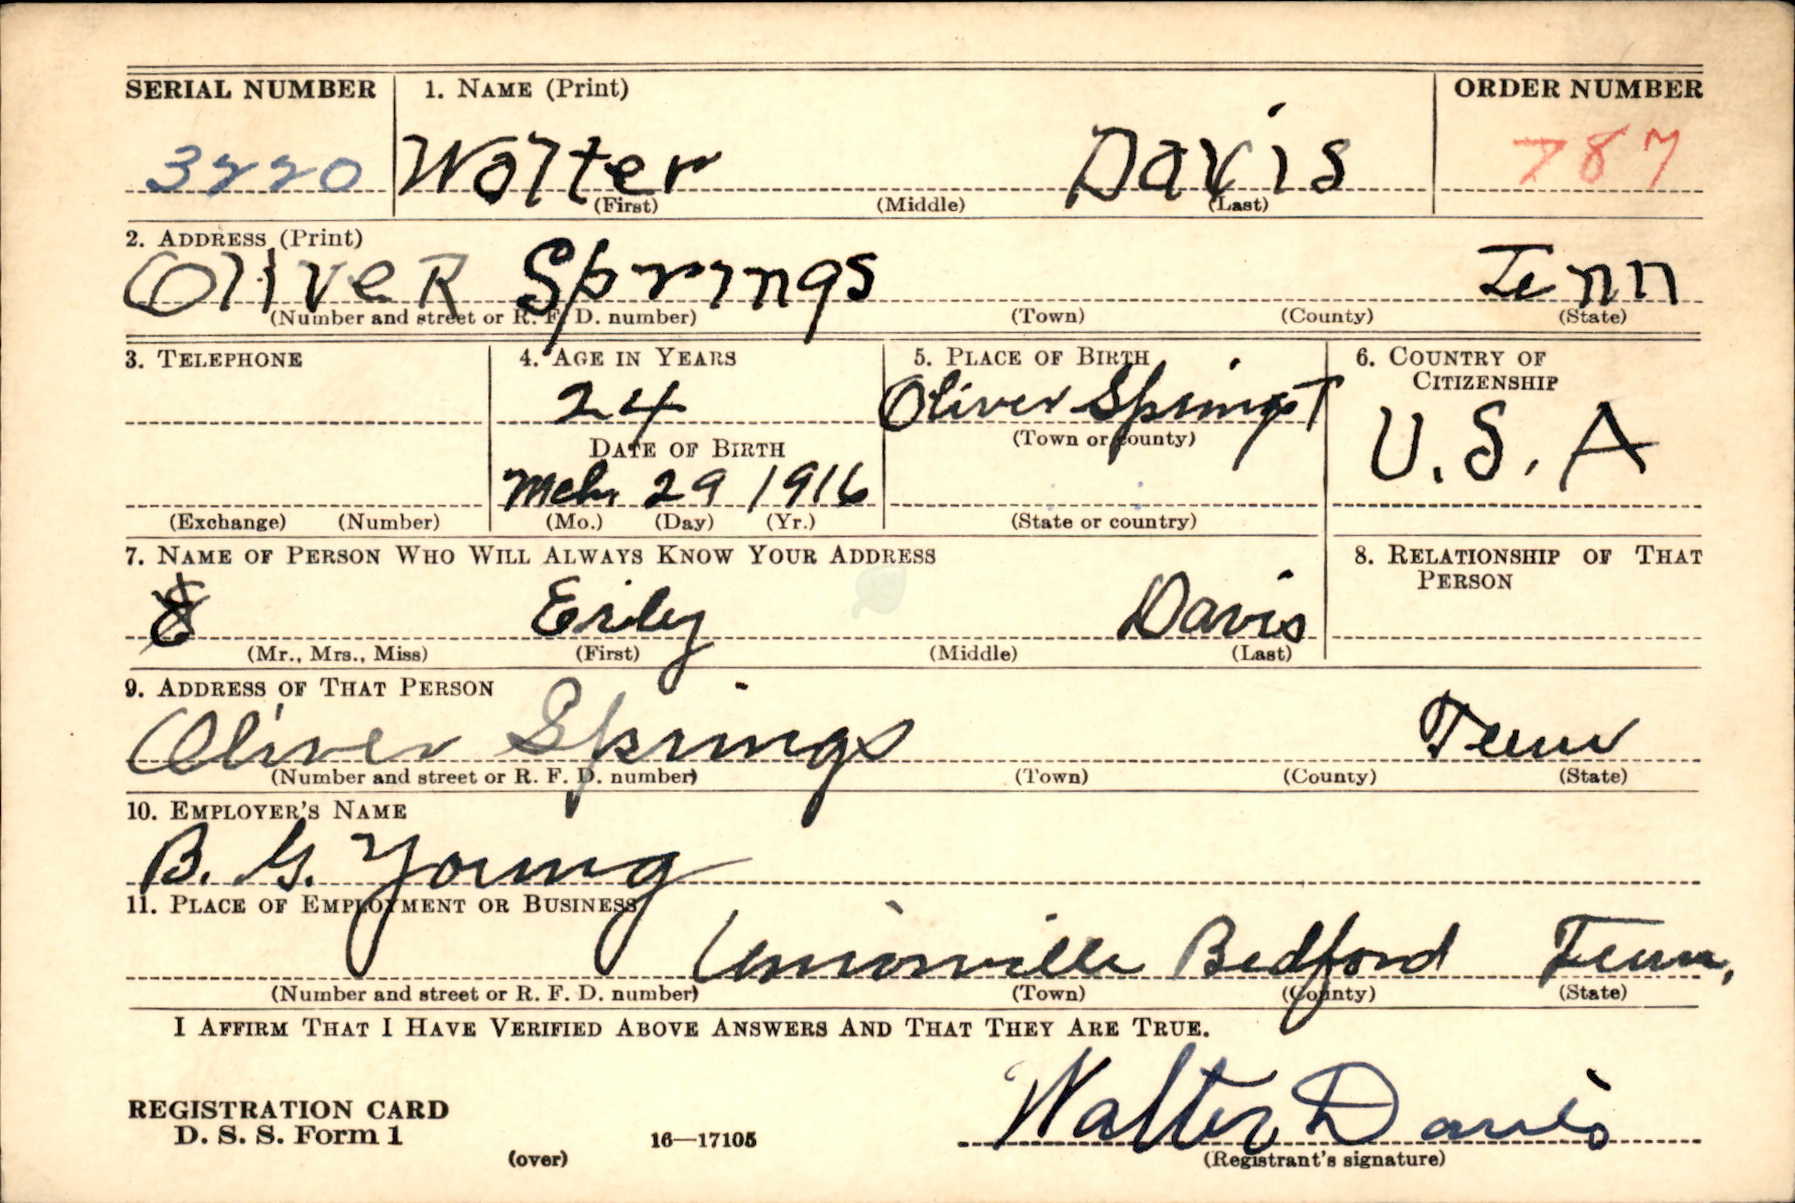 SERIAL NUMBER 1. NAME (Print) ORDER NUMBER
3220 Walter Davis 787
(First) (Middle) (Last)
2. ADDRESS (Print)
Oliver Springs Tenn
(Number and street or R. F. D. number) (Town) (County) (State)
3. TELEPHONE 4. AGE IN YEARS 5. PLACE OF BIRTH 6. COUNTRY OF
CITIZENSHIP
24 Oliver Springs T
DATE OF BIRTH (Town or county) U.S.A
Mch. 29 1916
(Exchange) (Number) (Mo.) (Day) (Yr.) (State or country)
7. NAME OF PERSON WHO WILL ALWAYS KNOW YOUR ADDRESS 8. RELATIONSHIP OF THAT
PERSON
Davis
(Mr., Mrs., Miss) (First) (Middle) (Last)
9. ADDRESS OF THAT PERSON
Oliver Springs Tenn
(Number and street or R. F. D. number) (Town) (County) (State)
10. EMPLOYER'S NAME
B. G. Young
11. PLACE OF EMPLOYMENT OR BUSINESS
Unionville Bedford Tenn,
(Number and street or R. F. D. number) (Town) (County) (State)
I AFFIRM THAT I HAVE VERIFIED ABOVE ANSWERS AND THAT THEY ARE TRUE.
Walter Davis
REGISTRATION CARD
D. S. S. Form 1 16—17105
(over) (Registrant's signature)